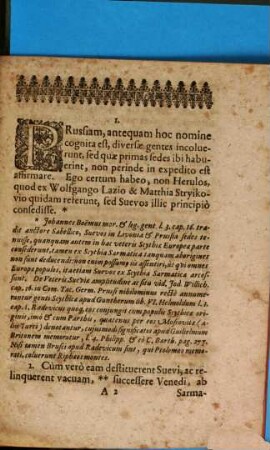 1.
PRussiam, antequam hoc nomine
cognita est, diversæ gentes incolue-
runt, sed quæ primas sedes ibi habu-
erint, non perinde in expedito est
affirmare. Ego certum habeo, non Herulos,
quod ex Wolfgango Lazio & Matthia Stryiko-
vio quidam referunt, sed Suevos illic principiò
consedisse. *
* Johannes Boëmus mor. & leg. gent. l. 3. cap. 16. tra-
dit auctore Sabellico, Suevos in Livonia & Prussia sedes te-
nuisse, quanquam autem in hac veteris Scythiæ Europæ parte
consederunt, tamen ex Scythia Sarmatica tanquam aborigines
non sunt deducendi; non enim possumus iis assentiri, à quo omnes
Europæ populos, itaetiam Suevos ex Scythia Sarmatica
De Veteris Suevia amplitudine
cap. 16. in Com. Tac. Germ. Prussi nihilominus rectè annume-
rantur genti Scythicæ apud Guntherum
cap. 1. Radevicus quoq; eos conjungit cum populis Scythica ori-
gine, imò & cum Parthis, quatenus per eos
denotantur, cujusmodi
Britonem memoratur, l. 4. Philipp.
Nostri nomen Brussi apud Radevicum sunt, qui Ptolemæo memo-
rati, coluerunt Riphæos montes.
2. Cùm verò eam destituerent Suevi, ac re-
linquerent vacuam, ** successere Venedi, ab
A 2 Sarma-